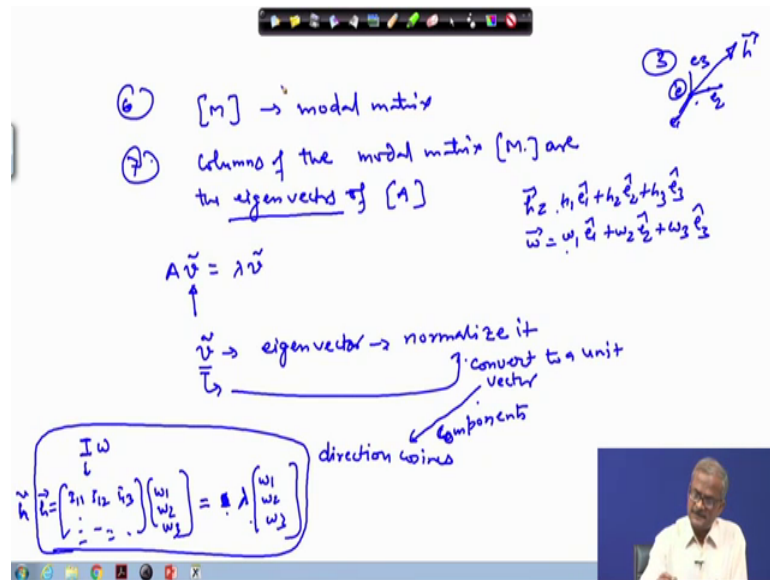 ⑥ [M] → modal matrix
⑦ columns of the modal matrix [M] are
the eigenvectors of [A]
③ e3 h⃗
e2
h⃗ = h1 ê1 + h2 ê2 + h3 ê3
ω⃗ = ω1 ê1 + ω2 ê2 + ω3 ê3
A ṽ = λ ṽ
ṽ → eigenvector → normalize it
convert to a unit
vector
components
direction cosines
I ω
h̃ h⃗ = [I11 I12 I13] [ω1 ω2 ω3] = λ [ω1 ω2 ω3]